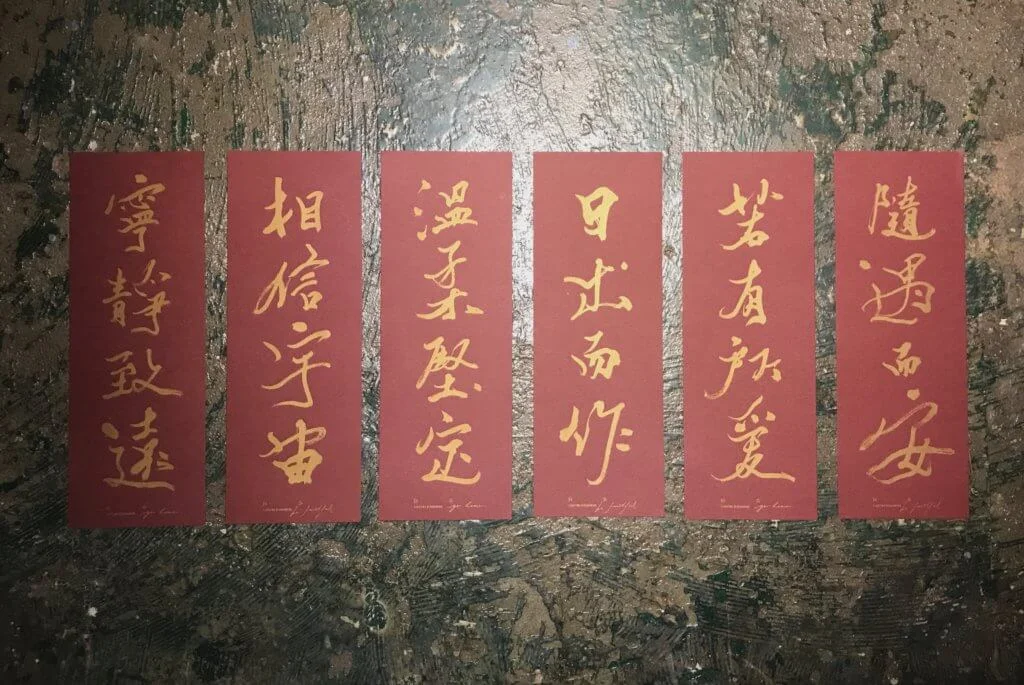 隨遇而安
若有所愛
日出而作
溫柔堅定
相信宇宙
寧靜致遠